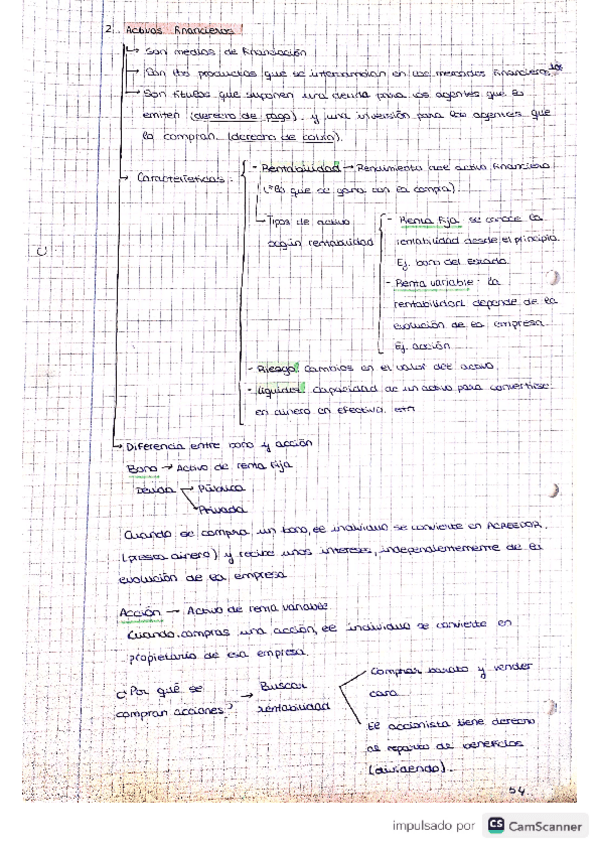 2.. Activos Financieros
↳ Son medios de financiación
→ Son los productos que se intercambian en los mercados financieros
→ Son títulos que suponen una deuda para los agentes que los
emiten (derecho de pago). y una inversión para los agentes que
la compran. (derecho de cobro).
→ Características:
- Rentabilidad → Rendimiento del activo financiero
(*lo que se gana con la compra)
Tipos de activo
según rentabilidad
- Renta fija se conoce la
rentabilidad desde el principio.
Ej. bono del estado
- Renta variable: la
rentabilidad depende de la
evolución de la empresa.
Ej. acción
- Riesgo: Cambios en el valor del activo.
- liquidez: Capacidad de un activo para convertirse
en dinero en efectivo.
↳ Diferencia entre bono y acción
Bono → Activo de renta fija
Deuda → Pública
Privada
Cuando se compra un bono, el individuo se convierte en ACREEDOR.
(presta dinero) y recibe unos intereses, independientemente de la
evolución de la empresa
Acción → Activo de renta variable
Cuando compras una acción, el individuo se convierte en
propietario de esa empresa.
¿Por qué se
compran acciones?
→ Buscar
rentabilidad
Comprar barato y vender
caro
El accionista tiene derecho
al reparto de beneficios
(dividendo).
54
impulsado por CS CamScanner